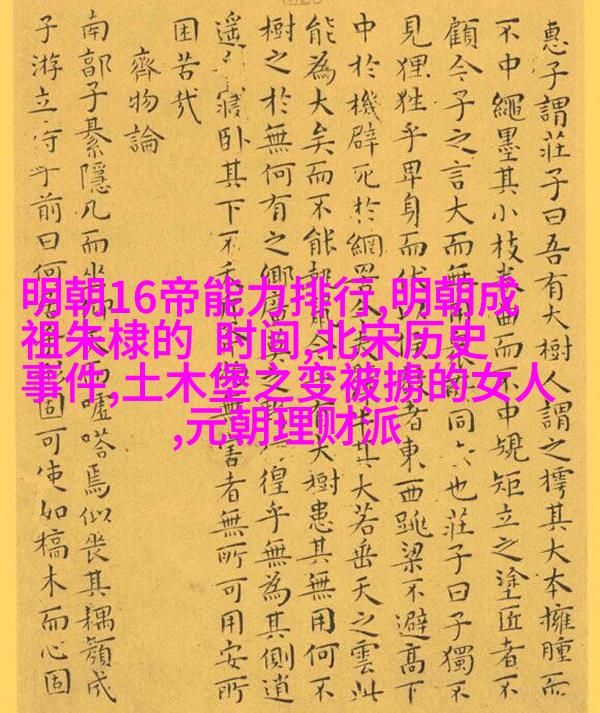 明朝16帝能力排行,明朝成
祖朱棣的 时间,北宋历史
事件,土木堡之变被掳的女人
,元朝理财派
惠子謂莊子曰吾有大樹人謂之樗其大本擁腫而
不中繩墨其小枝卷曲而不中規矩立之塗匠者不
顧今子之言大而無用同去也莊子曰子獨不
見狸狌乎卑身而伏候者東西跳梁不避高下
中於機辟死於網罟今其大若垂天之雲此
能為大矣而不能今有大樹患其無用何不
樹之於無何有之鄉廣莫之徨乎無為其側逍
遙寢卧其下不無害者無所可用安所
困苦哉
齊物論
南郭子綦隱几而坐而噓嗒焉似喪其耦顏成
子游立侍乎前曰何居固可使如槁木而心固